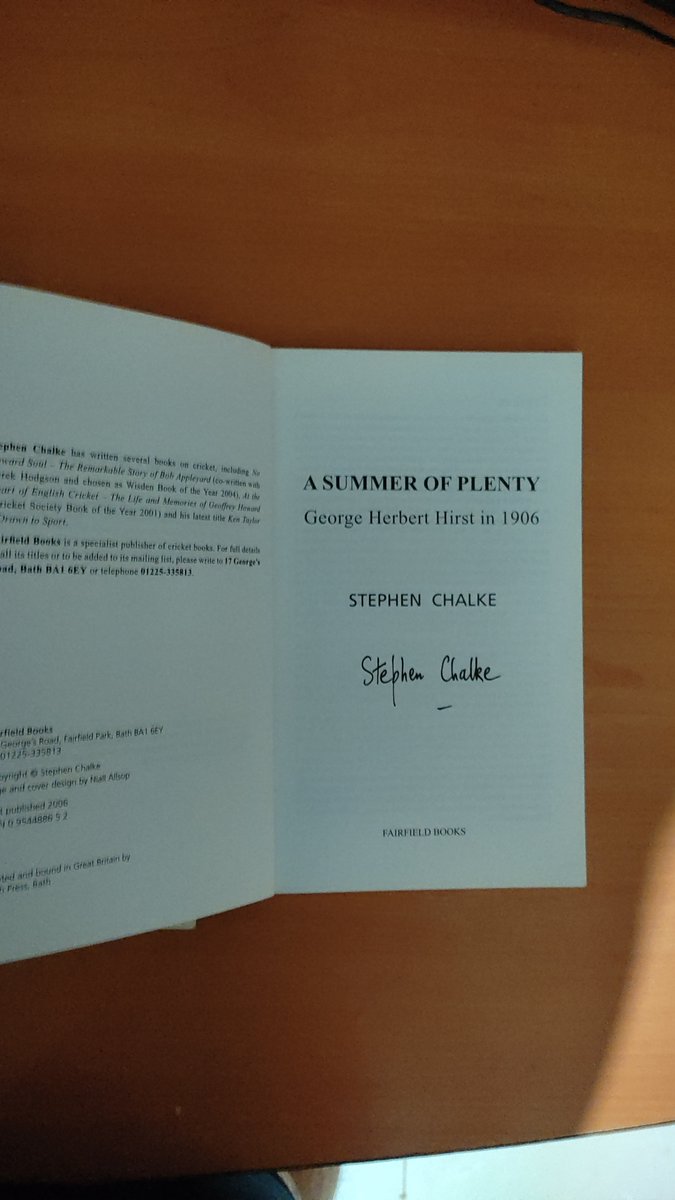 Chalke has written several books on cricket, including No
Soul – The Remarkable Story of Bob Appleyard (co-written with
Hodgson and chosen as Wisden Book of the Year 2004), At the
of English Cricket – The Life and Memories of Geoffrey Howard
Cricket Society Book of the Year 2001) and his latest title Ken Taylor
Drawn to Sport.
Books is a specialist publisher of cricket books. For full details
all its titles or to be added to its mailing list, please write to 17 George's
Bath BA1 6EY or telephone 01225-335813.
Books
George's Road, Fairfield Park, Bath BA1 6EY
01225-335813
© Stephen Chalke
and cover design by Niall Allsop
published 2006
0 9544886 5 2
and bound in Great Britain by
Press, Bath
A SUMMER OF PLENTY
George Herbert Hirst in 1906
STEPHEN CHALKE
Stephen Chalke
FAIRFIELD BOOKS